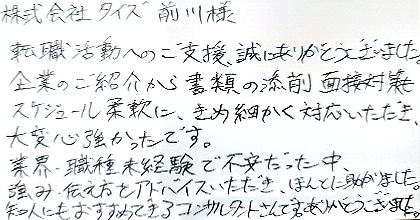 株式会社タイズ 前川様
転職活動へのご支援、誠にありがとうございました。
企業のご紹介から書類の添削 面接対策
スケジュール柔軟に、きめ細かく対応いただき、
大変心強かったです。
業界・職種未経験で不安だった中、
強み・伝え方をアドバイスいただき、ほんとに助かりました。
知人にもおすすめできるコンサルタントさんです。ありがとうございました